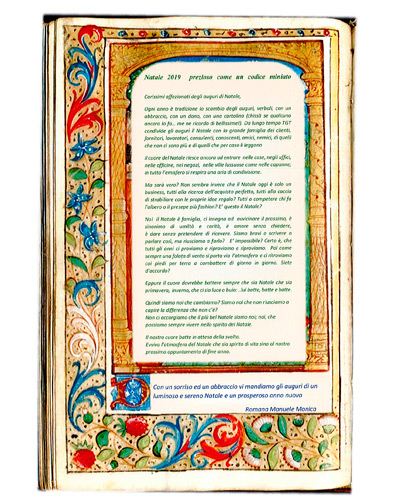 Natale 2019 prezioso come un codice miniato
Carissimi affezionati degli auguri di Natale,
Ogni anno è tradizione lo scambio degli auguri, verbali, con un
abbraccio, con un dono, con una cartolina (chissà se qualcuno
ancora lo fa.. me ne ricordo di bellissime!). Da lungo tempo TGT
condivide gli auguri il Natale con la grande famiglia dei clienti,
fornitori, lavoratori, consulenti, conoscenti, amici, nemici, di quelli
che non ci sono più e di quelli che per caso li leggono
Il cuore del Natale riesce ancora ad entrare nelle case, negli uffici,
nelle officine, nei negozi, nelle ville lussuose come nelle capanne,
in tutta l'atmosfera si respira una aria di condivisione.
Ma sarà vero? Non sembra invece che il Natale oggi è solo un
business, tutti alla ricerca dell'acquisto perfetto, tutti alla caccia
di strabiliare con le proprie idee regalo? Tutti a competere chi fa
l'albero o il presepe più fashion? E' questo il Natale?
Noi il Natale è famiglia, ci insegna ad avvicinare il prossimo, è
sinonimo di umiltà e carità, è amore senza chiedere,
è dare senza pretendere di ricevere. Siamo bravi a scrivere o
parlare così, ma riusciamo a farlo? E' impossibile? Certo è, che
tutti gli anni ci proviamo e riproviamo e riproviamo. Poi come
sempre una folata di vento si porta via l'atmosfera e ci ritroviamo
coi piedi per terra a combattere di giorno in giorno. Siete
d'accordo?
Eppure il cuore dovrebbe battere sempre che sia Natale che sia
primavera, inverno, che ci sia luce o buio: ..lui batte, batte e batte.
Quindi siamo noi che cambiamo? Siamo noi che non riusciamo a
capire la differenza che non c'è?
Non ci accorgiamo che il più bel Natale siamo noi; noi, che
possiamo sempre vivere nello spirito del Natale.
Il nostro cuore batte in attesa della svolta.
Evviva l'atmosfera del Natale che sia spirito di vita sino al nostro
prossimo appuntamento di fine anno.
Con un sorriso ed un abbraccio vi mandiamo gli auguri di un
luminoso e sereno Natale e un prosperoso anno nuovo
Romana Manuele Monica